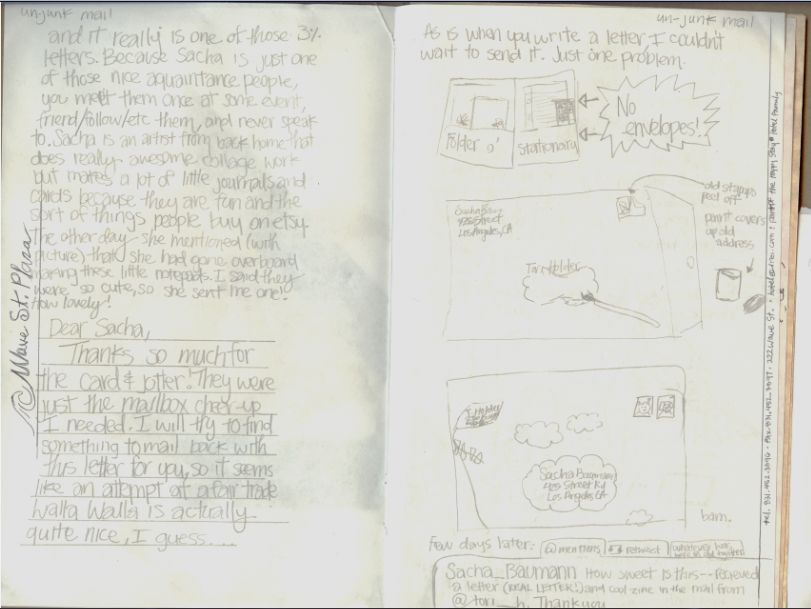 un-junk mail
and it really is one of those 3%
letters. Because Sacha is just one
of those nice aquaintance people,
you meet them once at some event,
friend/follow/etc them, and never speak
to. Sacha is an artist from back home that
does really awesome collage work
but makes a lot of little journals and
cards because they are fun and the
sort of things people buy on etsy.
The other day she mentioned (with
picture) that she had gone overboard
making these little notepads. I said they
were so cute, so she sent me one!
How lovely!
Dear Sacha,
Thanks so much for
the card & jotter. They were
just the mailbox cheer-up
I needed. I will try to find
something to mail back with
this letter for you, so it seems
like an attempt at a fair trade
Walla Walla is actually
quite nice, I guess....
@ Wave St. Plaza
un-junk mail
As is when you write a letter, I couldn't
wait to send it. Just one problem.
Folder o'
stationary
No
envelopes!
old stamps
peel off
paint covers
up old
address
Sacha
Street
Los Angeles, CA
Tori Holder
Sacha Baumann
Street
Los Angeles CA
bam.
Few days later:
@mentions
retweet
whatever
Sacha_Baumann How sweet is this--recieved
a letter (REAL LETTER!) and cool zine in the mail from
@tori_h. Thank you
tel. 831.452.3096 · Fax 831.452.3097 · 222 Wave St.